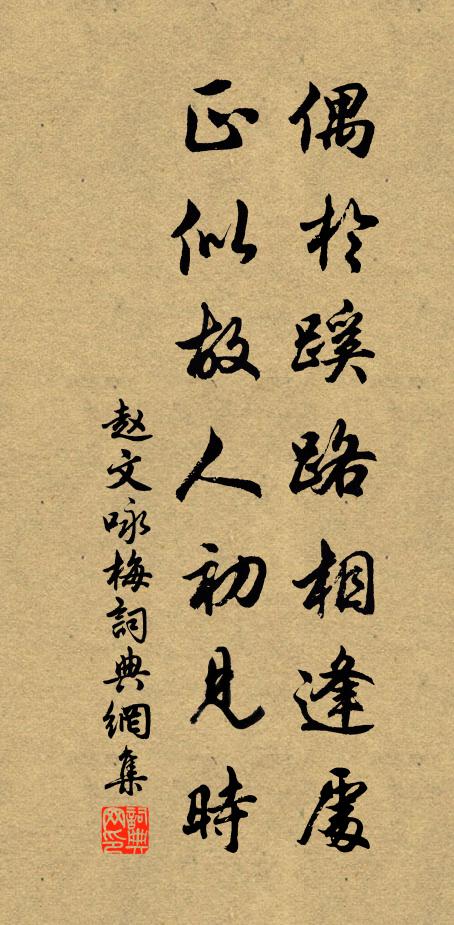 偶於蹊路相逢處
正似故人初見時
赵文咏梅詞典網集
詞典网印